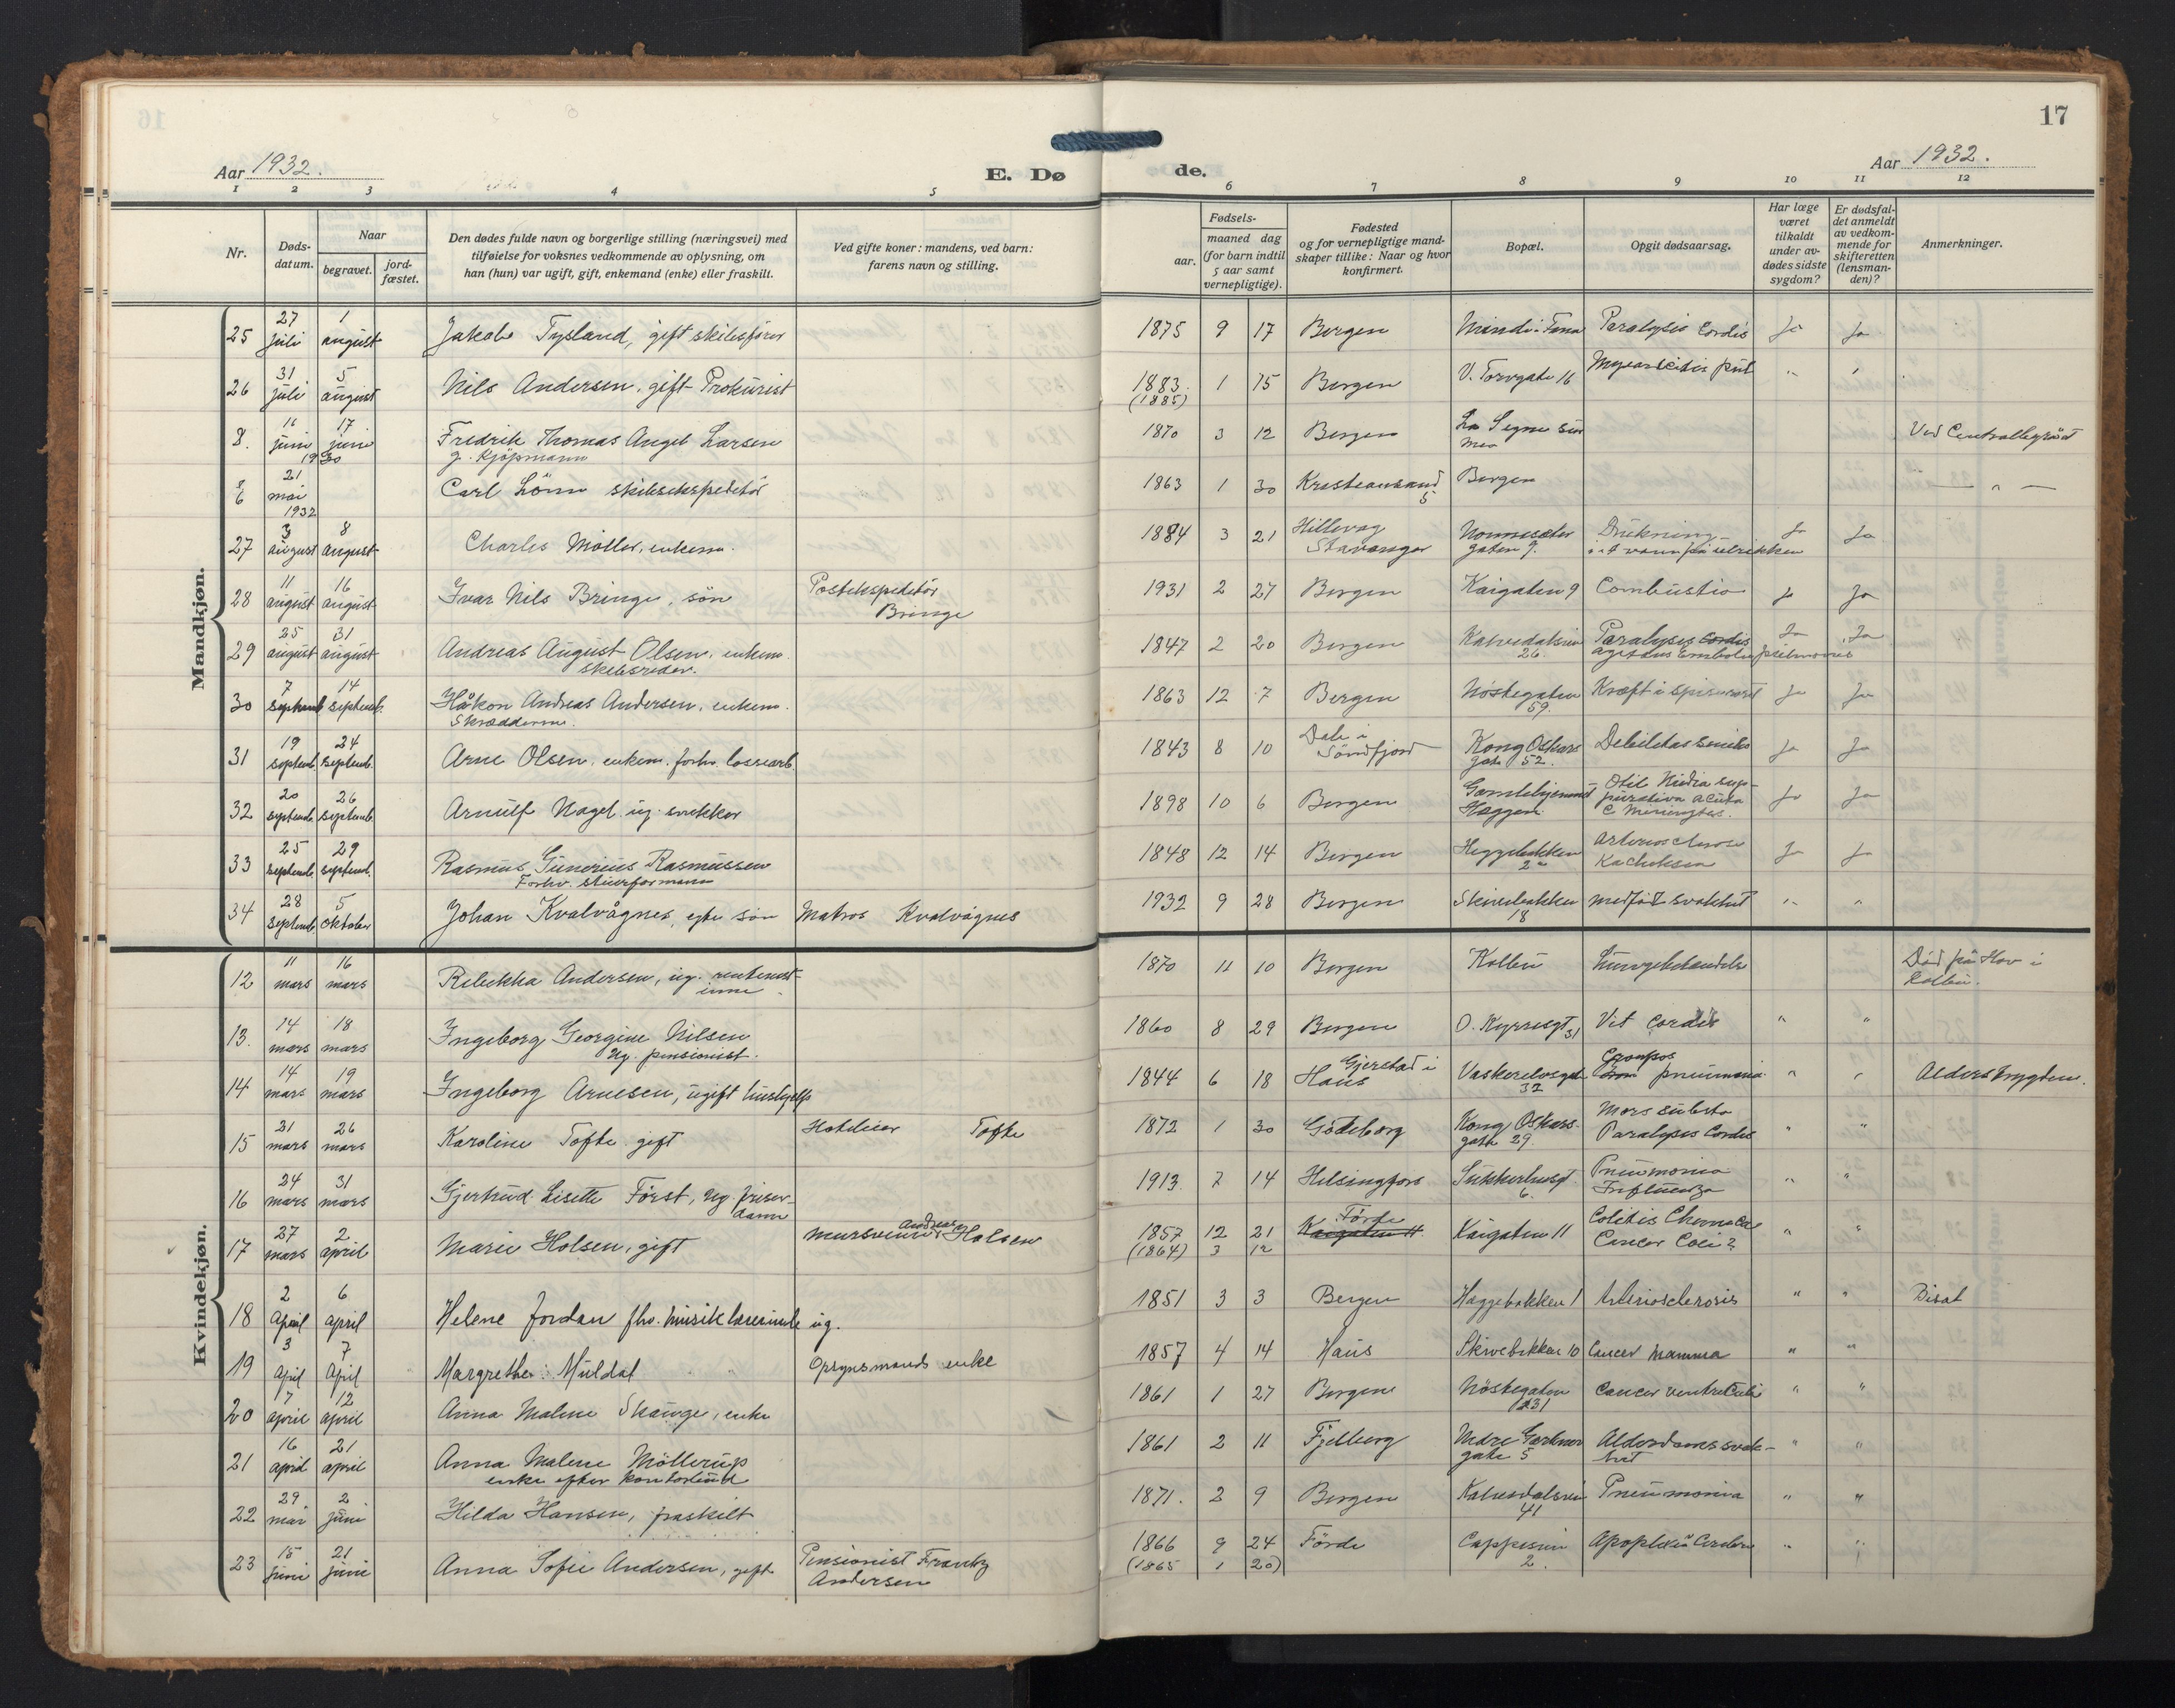 16
17
Aar 1932.
E. Dø
de.
Aar 1932.
1 2 3 4 5
6 7 8 9 10 11 12
Nr.
Døds-datum.
Naar
begravet.
jord-fæstet.
Den dødes fulde navn og borgerlige stilling (næringsvei) med
tilføielse for voksnes vedkommende av oplysning, om
han (hun) var ugift, gift, enkemand (enke) eller fraskilt.
Ved gifte koner: mandens, ved barn:
farens navn og stilling.
Fødsels-
aar.
maaned dag
(for barn indtil
5 aar samt
vernepligtige).
Fødested
og for vernepligtige mand-
skaper tillike: Naar og hvor
konfirmert.
Bopæl.
Opgit dødsaarsag.
Har læge
været
tilkaldt
under av-
dødes sidste
sygdom?
Er dødsfal-
det anmeldt
av vedkom-
mende for
skifteretten
(lensman-
den)?
Anmerkninger.
Mandkjøn.
25 27 juli 1 august Jakob Tysland, gift skibsfører 1875 9 17 Bergen Minde i Fana Paralysis Cordis Ja Ja
26 31 juli 5 august Nils Andersen, gift Prokurist 1883. (1885) 1 15 Bergen V. Torvgate 16 " "
8. 16 juni 1930 17 juni Fredrik Thomas Angel Larsen
g. Kjöpmann 1870 3 12 Bergen La Segne sur mer
6 21 mai 1932 Carl Lönn skibsekspeditör 1863 1 30 Kristiansand S Bergen — " —
27 3 august 8 august Charles Möller, enkem. 1884 3 21 Hillevag Stavanger Nonneseter gaten 9. Drukning Ja Ja
28 11 august 16 august Ivar Nils Bringe, sön Postekspeditör Bringe 1931 2 27 Bergen Kaigaten 9 Combustio Ja Ja
29 25 august 31 august Andreas August Olsen, enkem.
skibsreder. 1847 2 20 Bergen Kalvedalsvei 26 Paralysis Cordis agitans Ja Ja
30 7 septemb 14 septemb. Håkon Andreas Andersen, enkem.
Skrædderm. 1863 12 7 Bergen Nöstegaten 59. Kræft i spiserøret Ja Ja
31 19 septemb. 24 septemb. Arne Olsen, enkem. forhv. lossearb. 1843 8 10 Dale i Söndfjord Kong Oskars gate 52. Debilitas senilis Ja Ja
32 20 septemb. 26 septemb. Arnulf Nagel ug. snekker 1898 10 6 Bergen Gamlehjemmet Hæggen Otit Media sup-
purativa acuta
c Meningitis. Ja Ja
33 25 septemb. 29 septemb. Rasmus Gunerius Rasmussen
Forhv. stuerformann 1848 12 14 Bergen Heggebakken 2a Ja Ja
34 28 septemb. 5 oktober Johan Kvalvågnes, egte sön Matros Kvalvågnes 1932 9 28 Bergen Skivebakken 18 medfödt svakhet " "
Kvindekjøn.
12 11 mars 16 mars Rebekka Andersen, ug. 1870 11 10 Bergen Kolbu Lungebetændelse Död på Hov i Kolbu.
13. 14 mars 18 mars Ingeborg Georgine Nilsen
Ug. pensionist. 1860 8 29 Bergen O. Kyrresgt 31 Vit cordis " "
14 14 mars 19 mars Ingeborg Arnesen, ugift hushjelp 1844 6 18 Gjerstad i Haus Vaskerelvsgt. 32 Croupos pneumonia " " Alderstrygden.
15 21 mars 26 mars Karoline Tofte gift Hotelier Tofte 1872 1 30 Göteborg Kong Oskars-
gate 29. Mors subita
Paralysis Cordis " "
16 24 mars 31 mars Gjertrud Lisette Först, ug. friser-
dame 1913. 7 14 Helsingfors Sukkerhusgt. 6. Pneumonia
Influenza " "
17 27 mars 2 april Marie Holsen, gift Mursvend Andreas Holsen 1857 (1864) 12 3 21 12 Förde Kaigaten 11 Kaigaten 11 Colitis
Cancer Coli? " "
18 2 April 6 april Helene Jordan fhv. musiklærerinde ug. 1851 3 3 Bergen Hæggebakken 1 Arteriosclerosis " " Bisat
19 3 April 7 April Margrethe Muldal Opsynsmands enke 1857 4 14 Haus Skivebakken 10 Cancer mamma " "
20 7 april 12 april Anna Malene Skauge, enke 1861 1 27 Bergen Nöstegaten 131 Cancer ventriculi " "
21 16 april 21 april Anna Malene Möllerup
enke efter kontorbud 1861 2 11 Fjelberg Nedre Gartner
gate 5 Alderdomssvak-
het " "
22 29 mai 2 juni Hilda Hansen, fraskilt 1871. 2 9 Bergen Kalvedalsvei 41 Pneumonia " "
23 15 juni 21 juni Anna Sofie Andersen, gift Pensionist Frantz
Andersen 1866 (1865 9 1 24 20) Förde Cappesvei 2. Apoplexia Cerebri " "